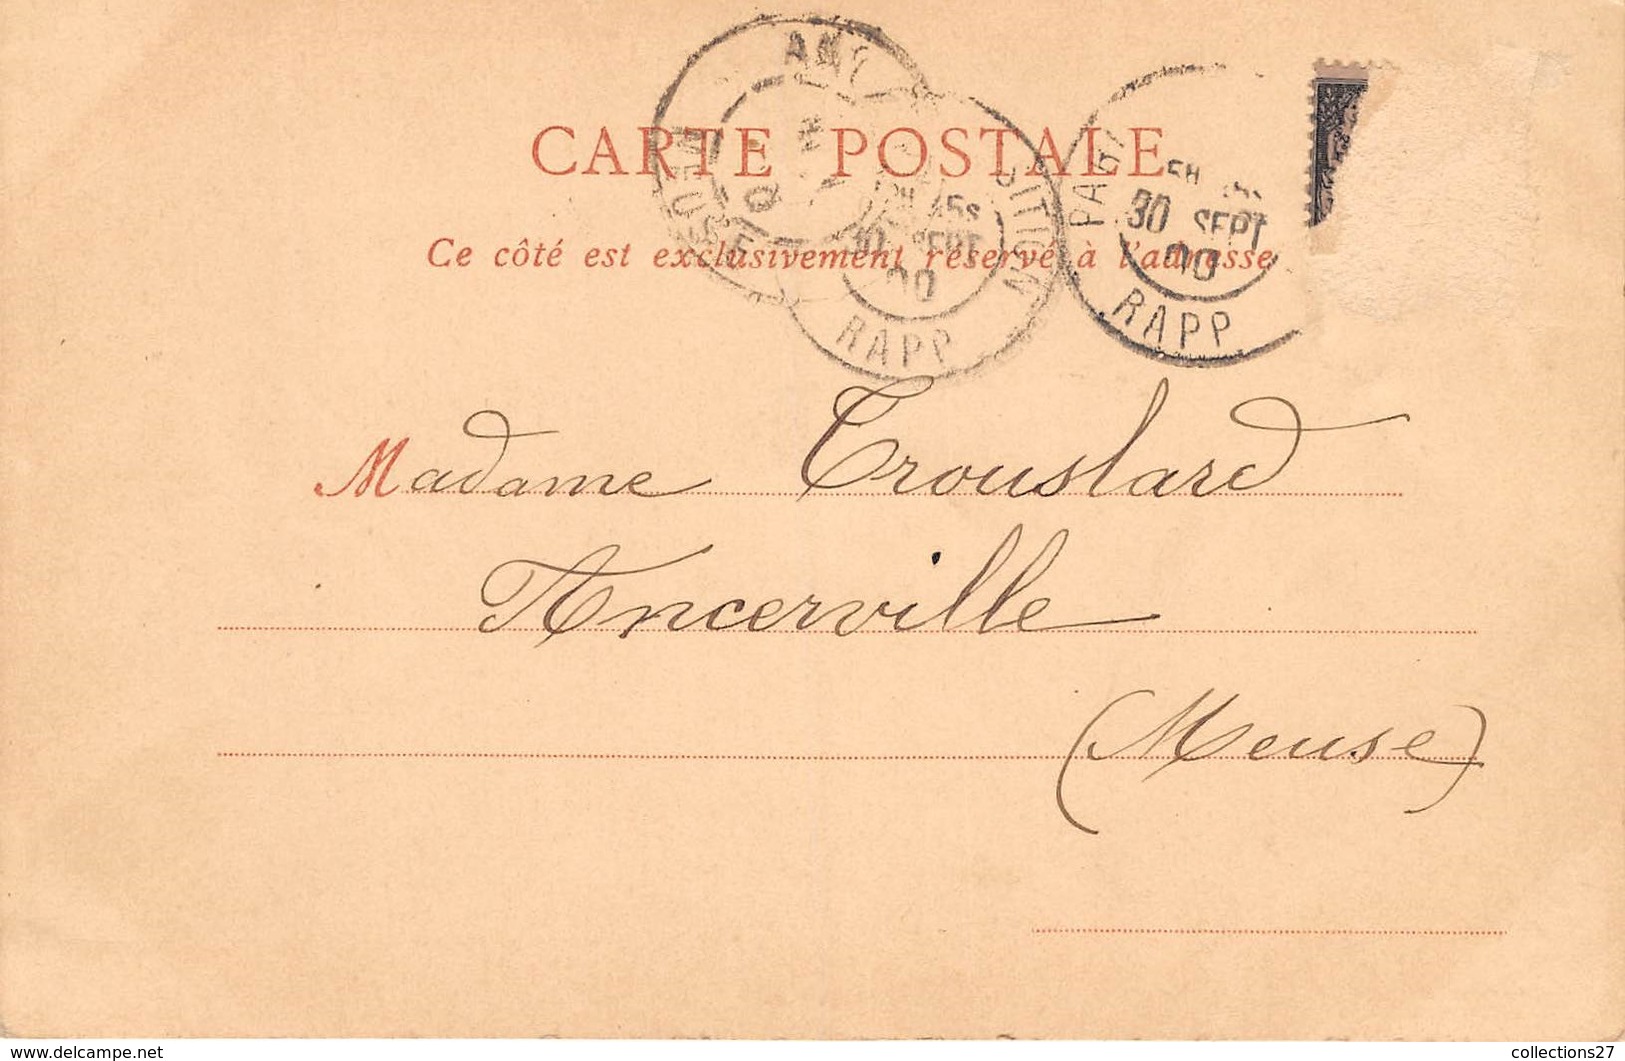 CARTE POSTALE
Ce côté est exclusivement réservé à l'adresse
MEUSE
5S
30 SEPT
00
RAPP
30 SEPT
00
RAPP
Madame Trouslard
Ancerville
(Meuse)
www.delcampe.net
collections27